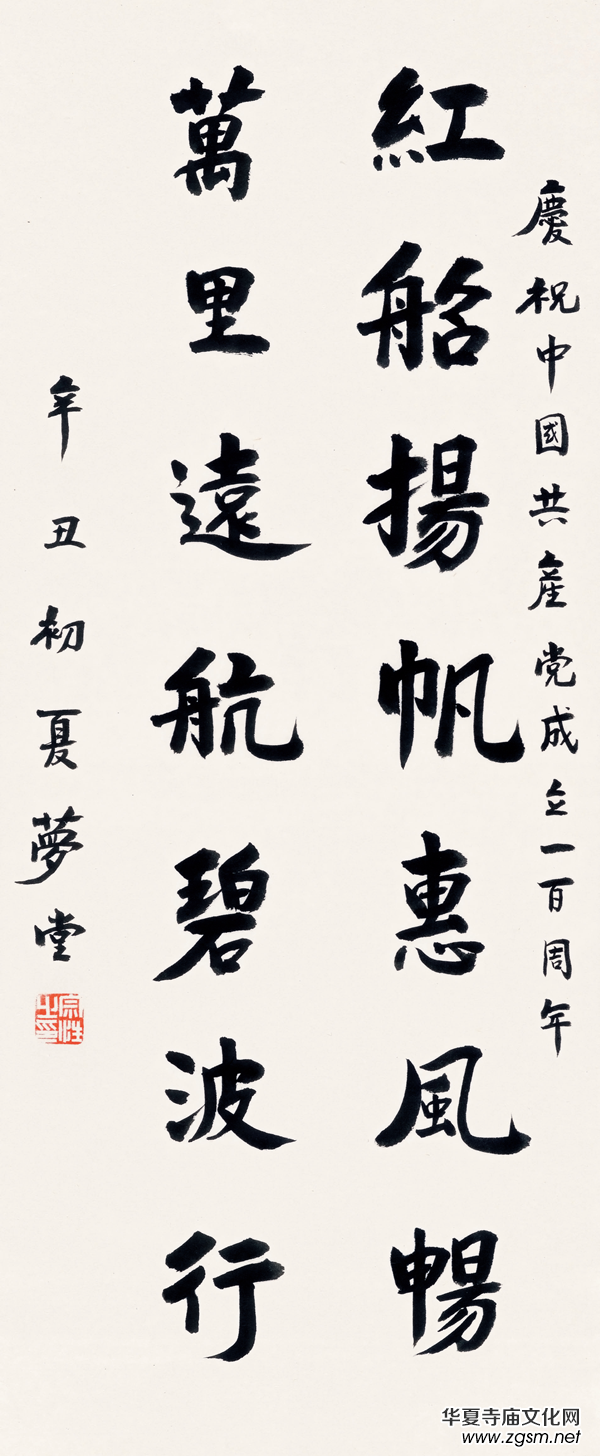 慶祝中國共産党成立一百周年
紅船揚帆惠風暢
萬里遠航碧波行
辛丑初夏夢堂
宗性之印
华夏寺庙文化网
www.zgsm.net